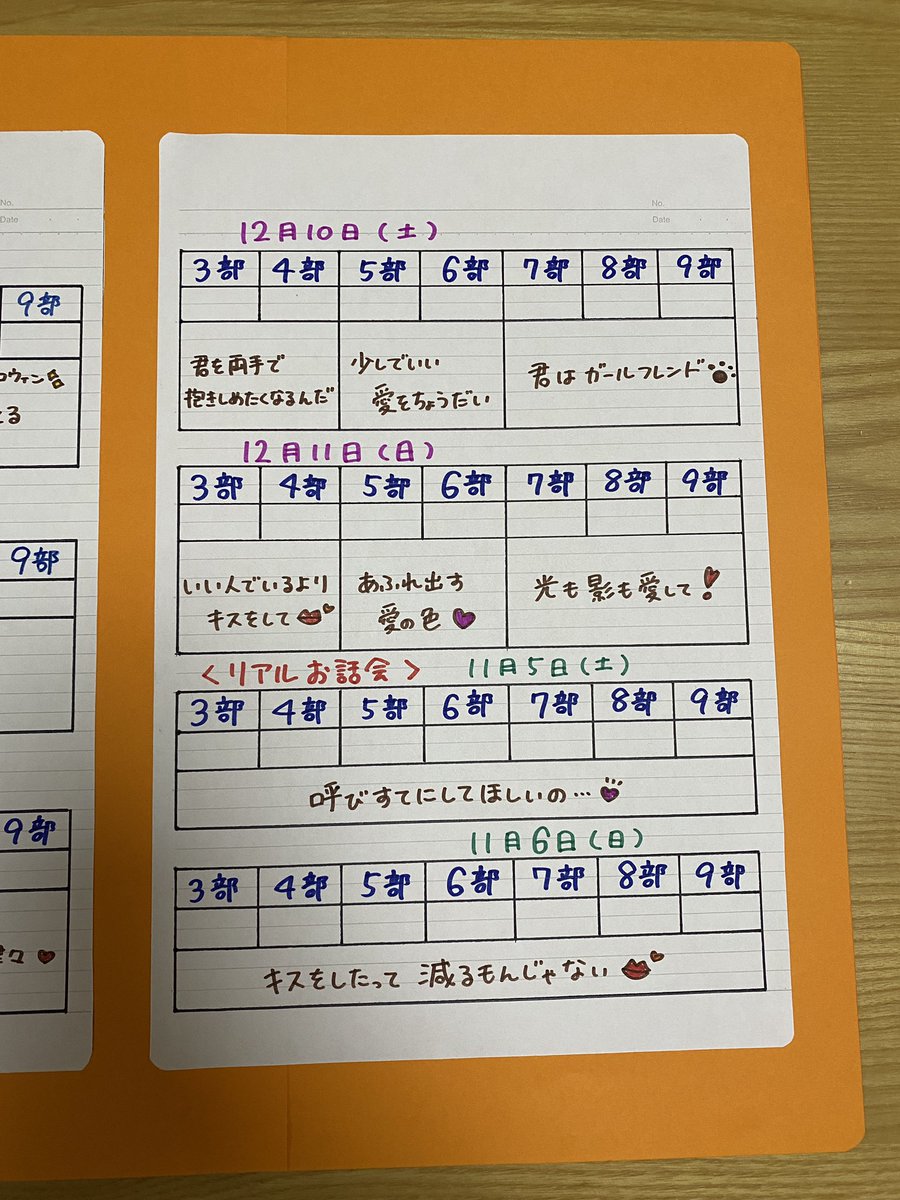 No.
Date
9部
ロウィン
る
9部
9部
No.
Date
12月10日(土)
3部 4部 5部 6部 7部 8部 9部
君を両手で
抱きしめたくなるんだ
少しでいい
愛をちょうだい
君はガールフレンド
12月11日(日)
3部 4部 5部 6部 7部 8部 9部
いい人でいるより
キスをして
あふれ出す
愛の色
光も影も愛して!
<リアルお話会> 11月5日(土)
3部 4部 5部 6部 7部 8部 9部
呼びすてにしてほしいの…
11月6日(日)
3部 4部 5部 6部 7部 8部 9部
キスをしたって 減るもんじゃない